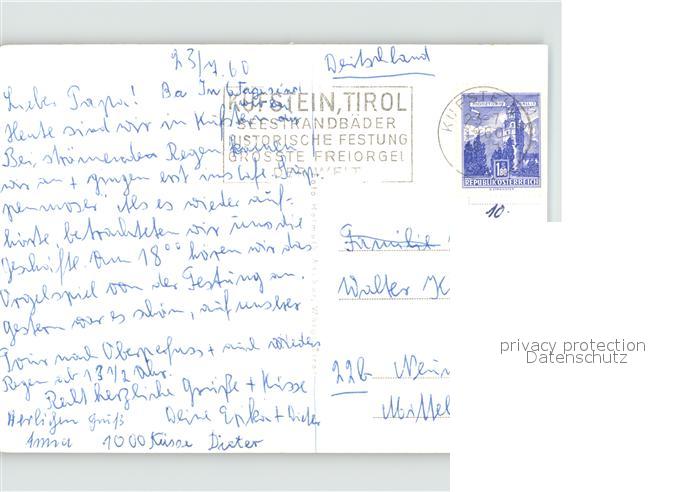 23/7.60
Deutschland
Lieber Papa!
Heute sind wir in Kufstein
Bei strömendem Regen kamen
wir an + gingen erst ins Café Hip-
penmoser. Als es wieder auf-
hörte, betrachteten wir uns die
Geschäfte. Um 18°° hören wir das
Orgelspiel von der Festung an.
Gestern war es schön, auf unserer
Tour nach Oberperfuss + wieder
Regen ab 13 1/2 Uhr.
Recht herzliche Grüße + Küsse
Herzlichen Gruß Deine Erika + Dieter
Anna 1000 Küsse Dieter
KUFSTEIN, TIROL
SEESTRANDBÄDER
HISTORISCHE FESTUNG
GRÖSSTE FREIORGEL
DER WELT
KUFSTEIN
1.80
REPUBLIK ÖSTERREICH
10.
Familie
Walter
22b
privacy protection
Datenschutz